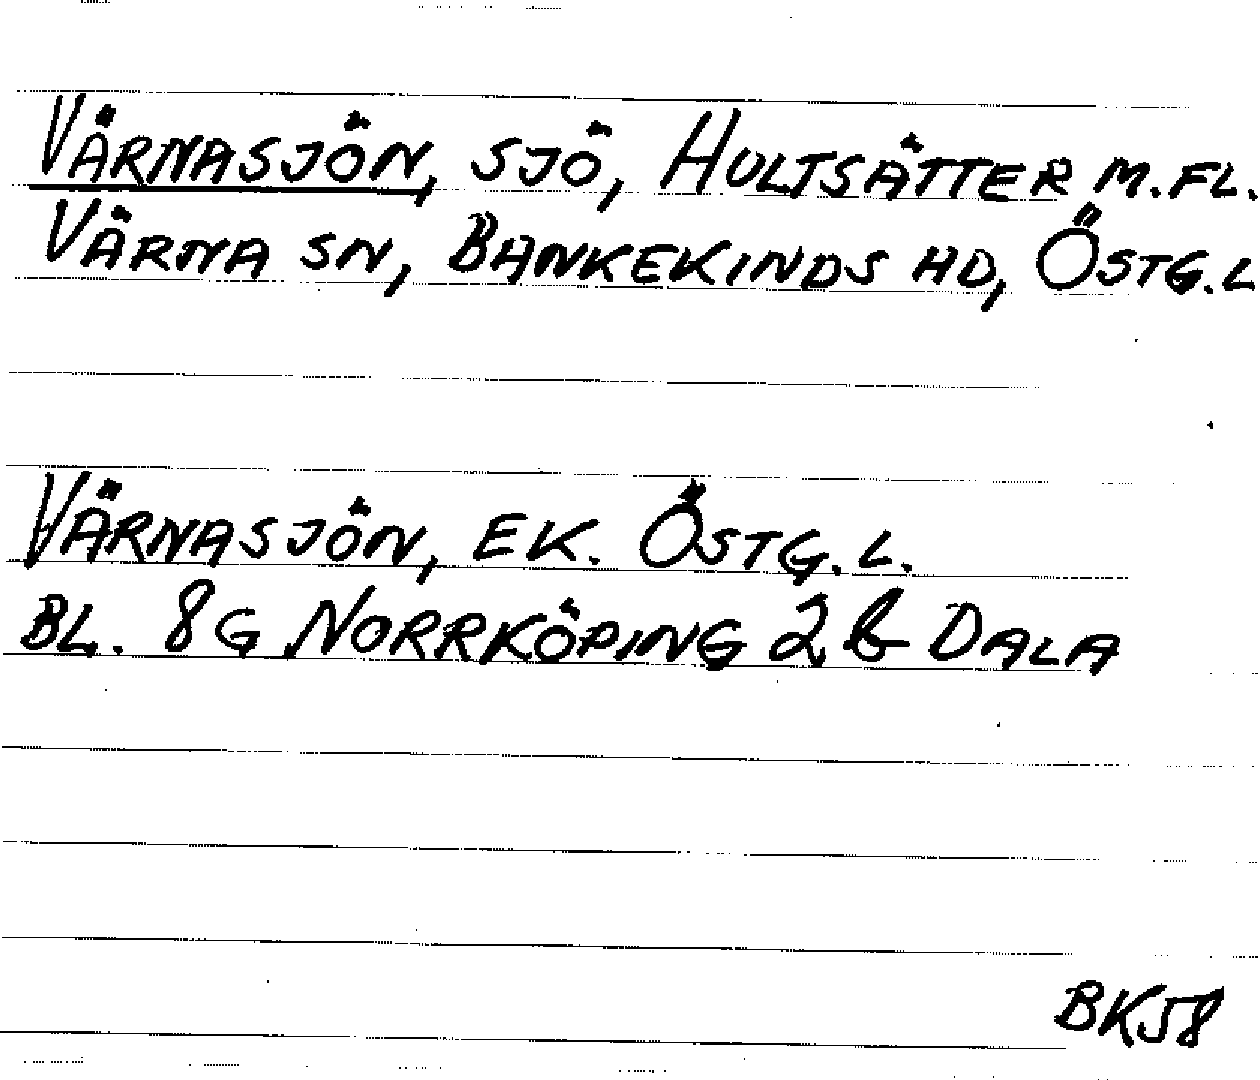 VÄRNASJÖN, SJÖ, HULTSÄTTER M.FL.
VÄRNA SN, BANKEKINDS HD, ÖSTG.L
VÄRNASJÖN, EK. ÖSTG.L.
BL. 8G NORRKÖPING 2b DALA
BK58